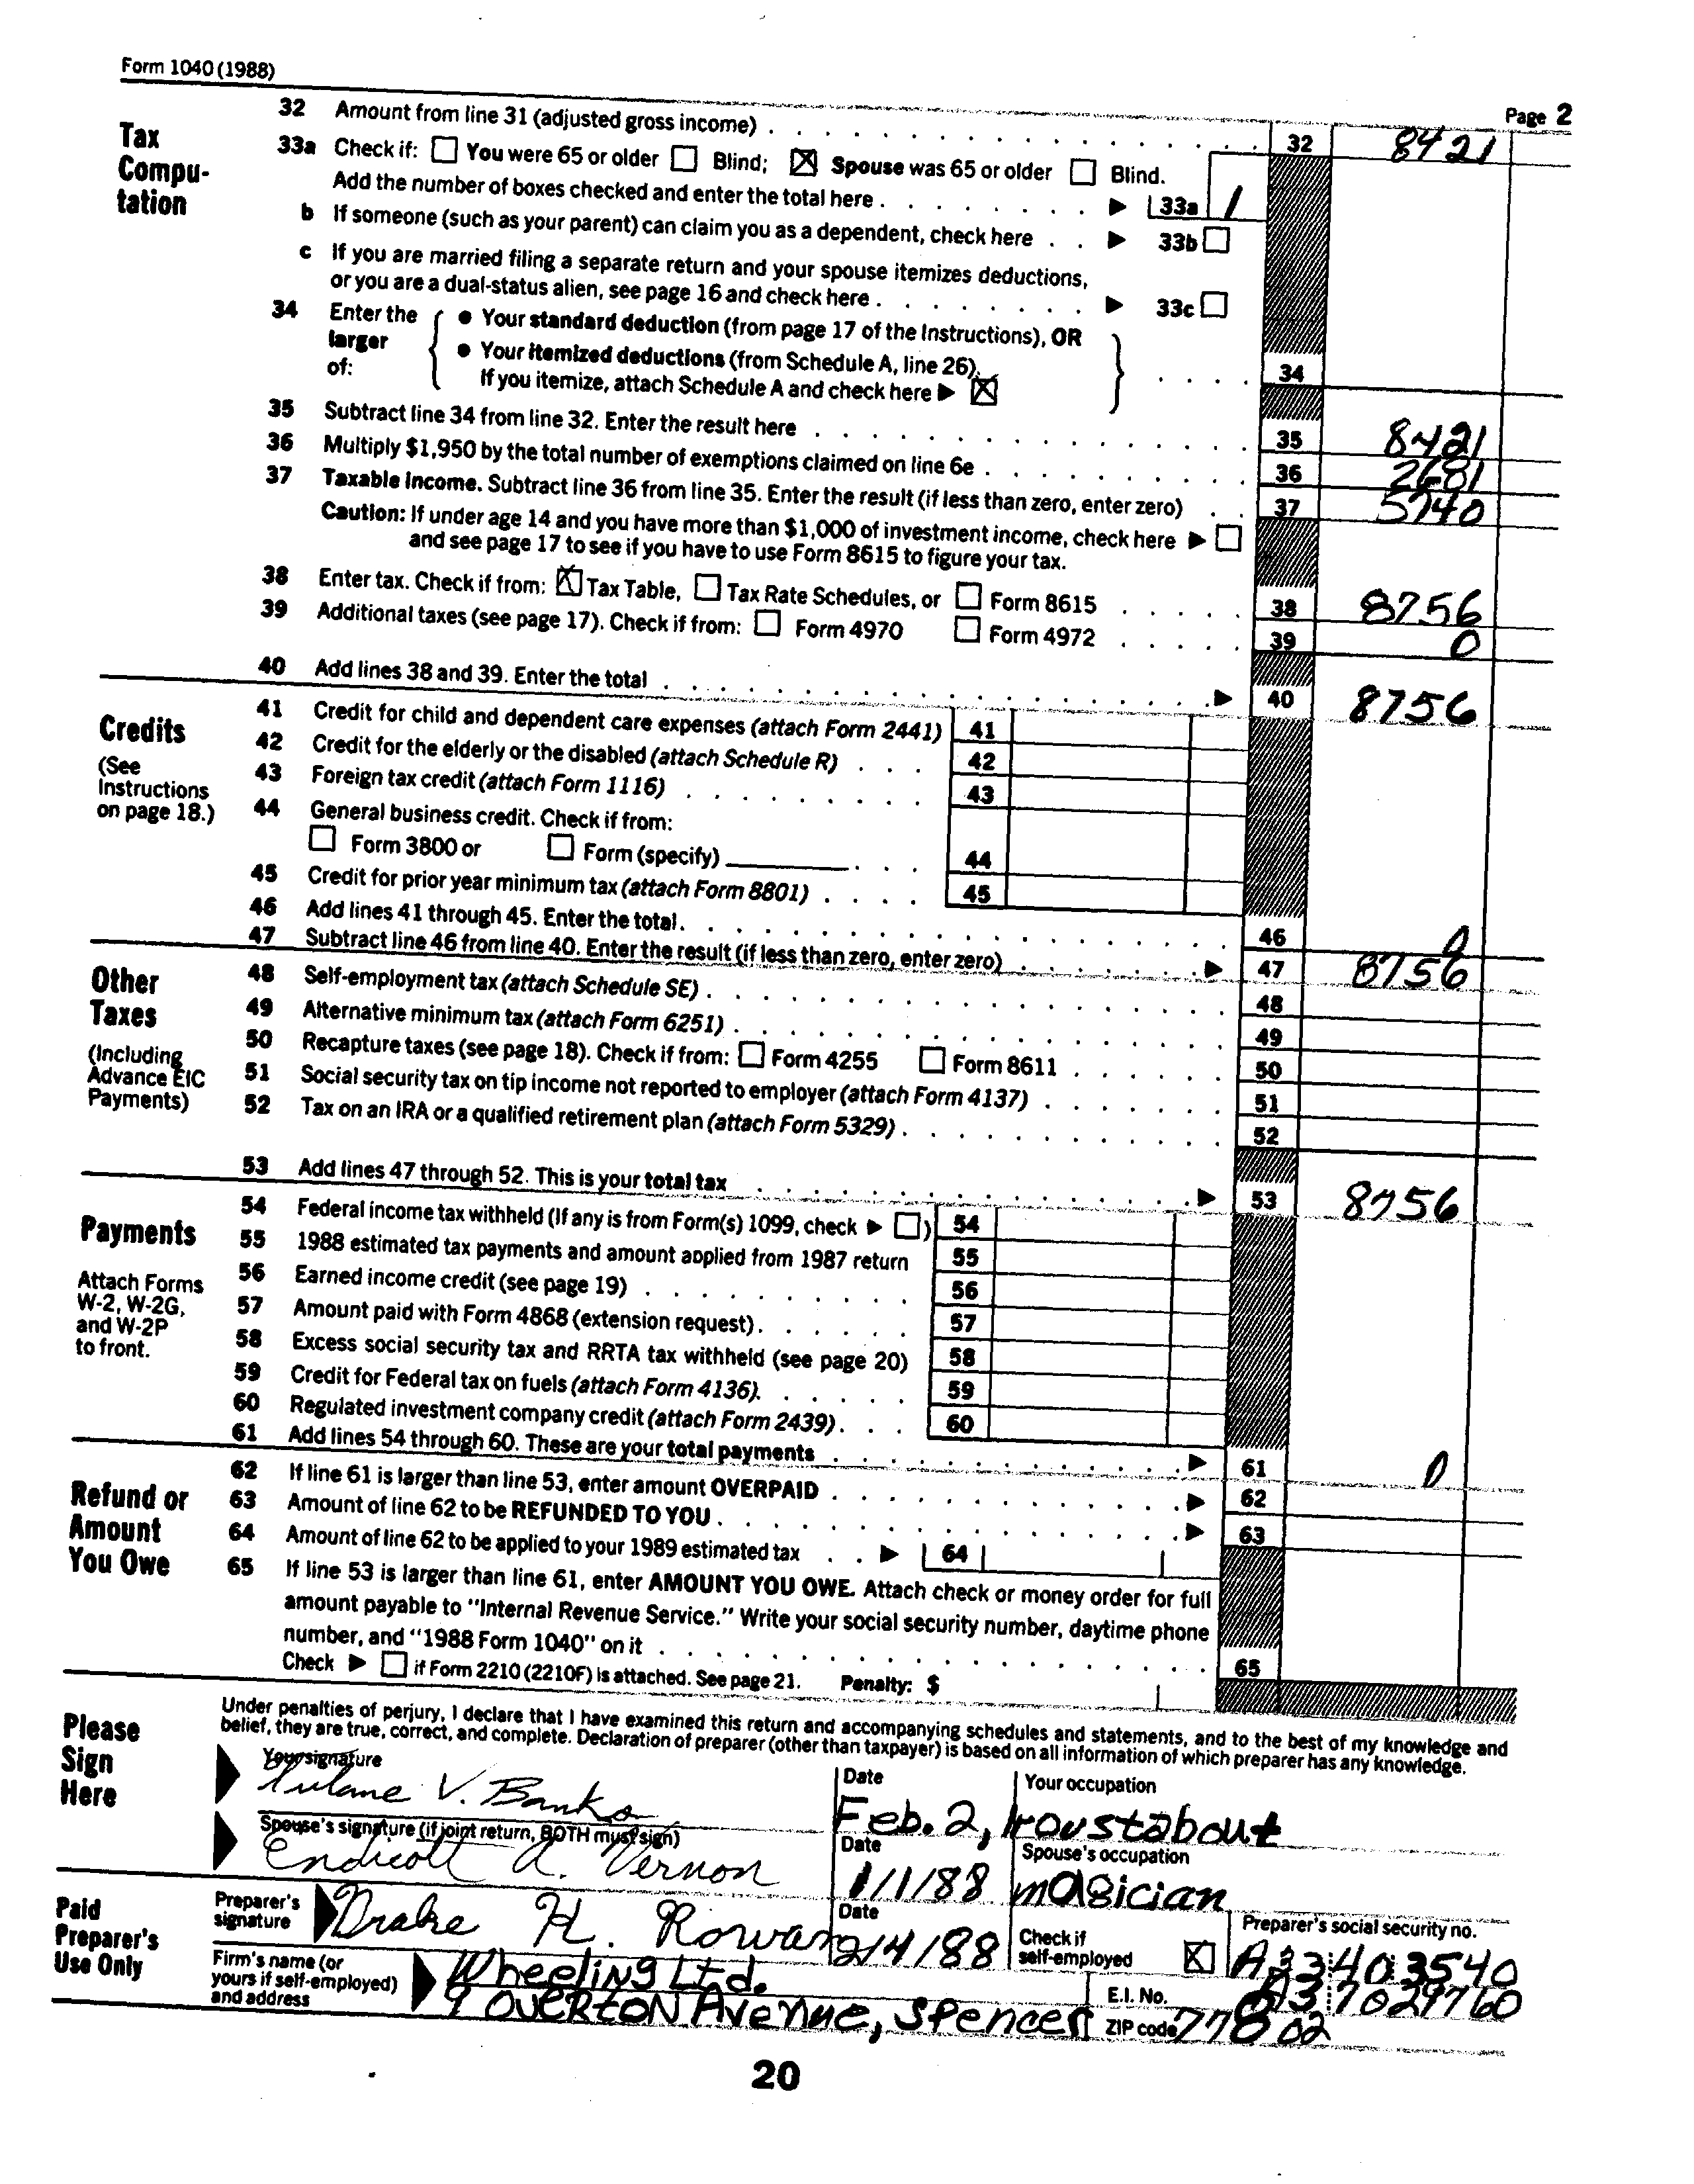 Form 1040 (1988)
Page 2
Tax Compu-tation
32 Amount from line 31 (adjusted gross income) 32 8421
33a Check if: You were 65 or older Blind; Spouse was 65 or older Blind.
Add the number of boxes checked and enter the total here. 33a 1
b If someone (such as your parent) can claim you as a dependent, check here 33b
c If you are married filing a separate return and your spouse itemizes deductions,
or you are a dual-status alien, see page 16 and check here. 33c
34 Enter the larger of:
• Your standard deduction (from page 17 of the Instructions), OR
• Your itemized deductions (from Schedule A, line 26).
If you itemize, attach Schedule A and check here 34
35 Subtract line 34 from line 32. Enter the result here 35 8421
36 Multiply $1,950 by the total number of exemptions claimed on line 6e 36 2681
37 Taxable Income. Subtract line 36 from line 35. Enter the result (if less than zero, enter zero) 37 5740
Caution: If under age 14 and you have more than $1,000 of investment income, check here
and see page 17 to see if you have to use Form 8615 to figure your tax.
38 Enter tax. Check if from: Tax Table, Tax Rate Schedules, or Form 8615 38 8756
39 Additional taxes (see page 17). Check if from: Form 4970 Form 4972 39 0
40 Add lines 38 and 39. Enter the total 40 8756
Credits
(See Instructions on page 18.)
41 Credit for child and dependent care expenses (attach Form 2441) 41
42 Credit for the elderly or the disabled (attach Schedule R) 42
43 Foreign tax credit (attach Form 1116) 43
44 General business credit. Check if from:
Form 3800 or Form (specify) 44
45 Credit for prior year minimum tax (attach Form 8801) 45
46 Add lines 41 through 45. Enter the total. 46 0
47 Subtract line 46 from line 40. Enter the result (if less than zero, enter zero) 47 8756
Other Taxes
(Including Advance EIC Payments)
48 Self-employment tax (attach Schedule SE) 48
49 Alternative minimum tax (attach Form 6251) 49
50 Recapture taxes (see page 18). Check if from: Form 4255 Form 8611 50
51 Social security tax on tip income not reported to employer (attach Form 4137) 51
52 Tax on an IRA or a qualified retirement plan (attach Form 5329) 52
53 Add lines 47 through 52. This is your total tax 53 8756
Payments
Attach Forms W-2, W-2G, and W-2P to front.
54 Federal income tax withheld (If any is from Form(s) 1099, check ) 54
55 1988 estimated tax payments and amount applied from 1987 return 55
56 Earned income credit (see page 19) 56
57 Amount paid with Form 4868 (extension request). 57
58 Excess social security tax and RRTA tax withheld (see page 20) 58
59 Credit for Federal tax on fuels (attach Form 4136). 59
60 Regulated investment company credit (attach Form 2439). 60
61 Add lines 54 through 60. These are your total payments 61 0
Refund or Amount You Owe
62 If line 61 is larger than line 53, enter amount OVERPAID 62
63 Amount of line 62 to be REFUNDED TO YOU 63
64 Amount of line 62 to be applied to your 1989 estimated tax 64
65 If line 53 is larger than line 61, enter AMOUNT YOU OWE. Attach check or money order for full
amount payable to "Internal Revenue Service." Write your social security number, daytime phone
number, and "1988 Form 1040" on it 65
Check if Form 2210 (2210F) is attached. See page 21. Penalty: $
Please Sign Here
Under penalties of perjury, I declare that I have examined this return and accompanying schedules and statements, and to the best of my knowledge and
belief, they are true, correct, and complete. Declaration of preparer (other than taxpayer) is based on all information of which preparer has any knowledge.
Your signature Date Your occupation
Tulane V. Banks Feb. 2, roustabout
Spouse's signature (if joint return, BOTH must sign) Date Spouse's occupation
Endicott A. Vernon 1/1/88 magician
Paid Preparer's Use Only
Preparer's signature Drake H. Rowan Date 2/4/88 Check if self-employed Preparer's social security no. 334 03540
Firm's name (or yours if self-employed) and address Wheeling Ltd. E.I. No. 7029760
9 Overton Avenue, Spencer ZIP code 77802
20